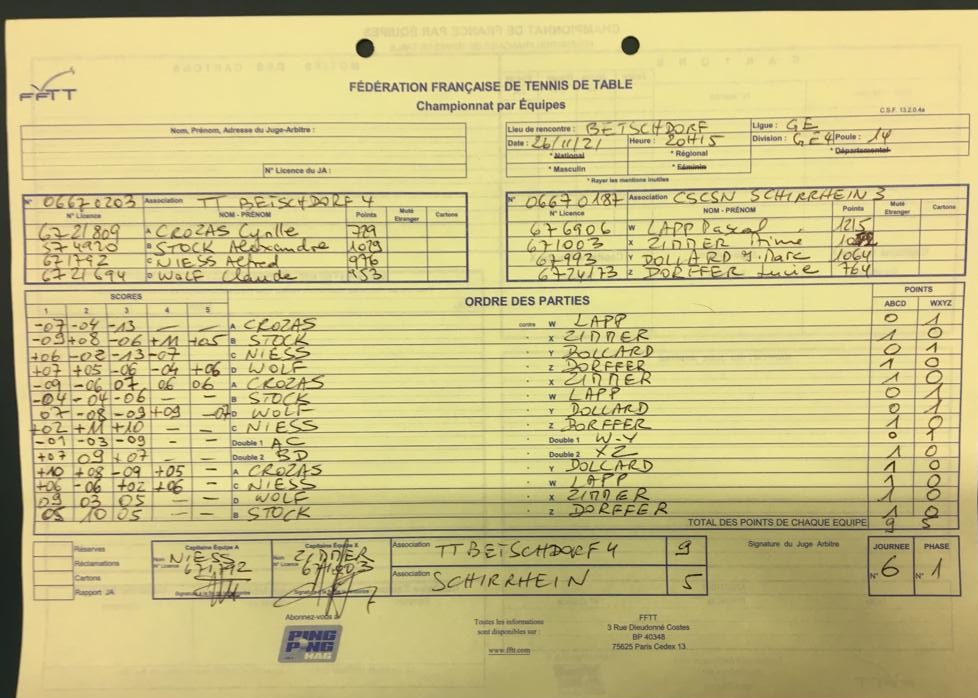 FFTT
FÉDÉRATION FRANÇAISE DE TENNIS DE TABLE
Championnat par Équipes
C.S.F. 13.2.0.4a
Nom, Prénom, Adresse du Juge-Arbitre :
N° Licence du JA :
Lieu de rencontre : BETSCHDORF Ligue : GE
Date : 26/11/21 Heure : 20H15 Division : GE4 Poule : 14
* National * Régional * Départemental
* Masculin * Féminin
* Rayer les mentions inutiles
N° 06670203 Association TT BETSCHDORF 4
N° Licence NOM - PRÉNOM Points Muté Etranger Cartons
6721809 A CROZAS Cyrille 729
574920 B STOCK Alexandre 1029
671792 C NIESS Alfred 976
6721694 D WOLF Claude 953
N° 06670187 Association CSCSN SCHIRRHEIN 3
N° Licence NOM - PRÉNOM Points Muté Etranger Cartons
676906 W LAPP Pascal 1215
671003 X ZIMMER
67993 Y DOLLARD J. Marc 1064
6724173 Z DORFFER Lucie 764
SCORES ORDRE DES PARTIES POINTS
1 2 3 4 5 ABCD WXYZ
-07 -04 -13 — — A CROZAS contre W LAPP 0 1
-09 +08 -06 +11 +05 B STOCK - X ZIMMER 1 0
+06 -02 -13 -07 C NIESS - Y DOLLARD 0 1
+07 +05 -06 -04 +06 D WOLF - Z DORFFER 1 0
-09 -06 07 06 06 A CROZAS - X ZIMMER 1 0
-04 -04 -06 — — B STOCK - W LAPP 0 1
07 -08 -09 +09 -07 D WOLF - Y DOLLARD 0 1
+02 +11 +10 — — C NIESS - Z DORFFER 1 0
-01 -03 -09 — — Double 1 AC - Double 1 W-Y 0 1
+07 09 +07 — — Double 2 BD - Double 2 XZ 1 0
+10 +08 -09 +05 — A CROZAS - Y DOLLARD 1 0
+06 -06 +02 +06 — C NIESS - W LAPP 1 0
09 03 05 — — D WOLF - X ZIMMER 1 0
05 10 05 — — B STOCK - Z DORFFER 1 0
TOTAL DES POINTS DE CHAQUE EQUIPE 9 5
Réserves
Réclamations
Cartons
Rapport JA
Capitaine Équipe A
Nom NIESS
N° Licence 671792
Capitaine Équipe X
Nom ZIMMER
N° Licence 671003
Association TT BETSCHDORF 4 9
Association SCHIRRHEIN 5
Signature du Juge Arbitre
JOURNEE PHASE
N° 6 N° 1
Abonnez-vous à
PING PONG MAG
Toutes les informations
sont disponibles sur :
www.fftt.com
FFTT
3 Rue Dieudonné Costes
BP 40348
75625 Paris Cedex 13